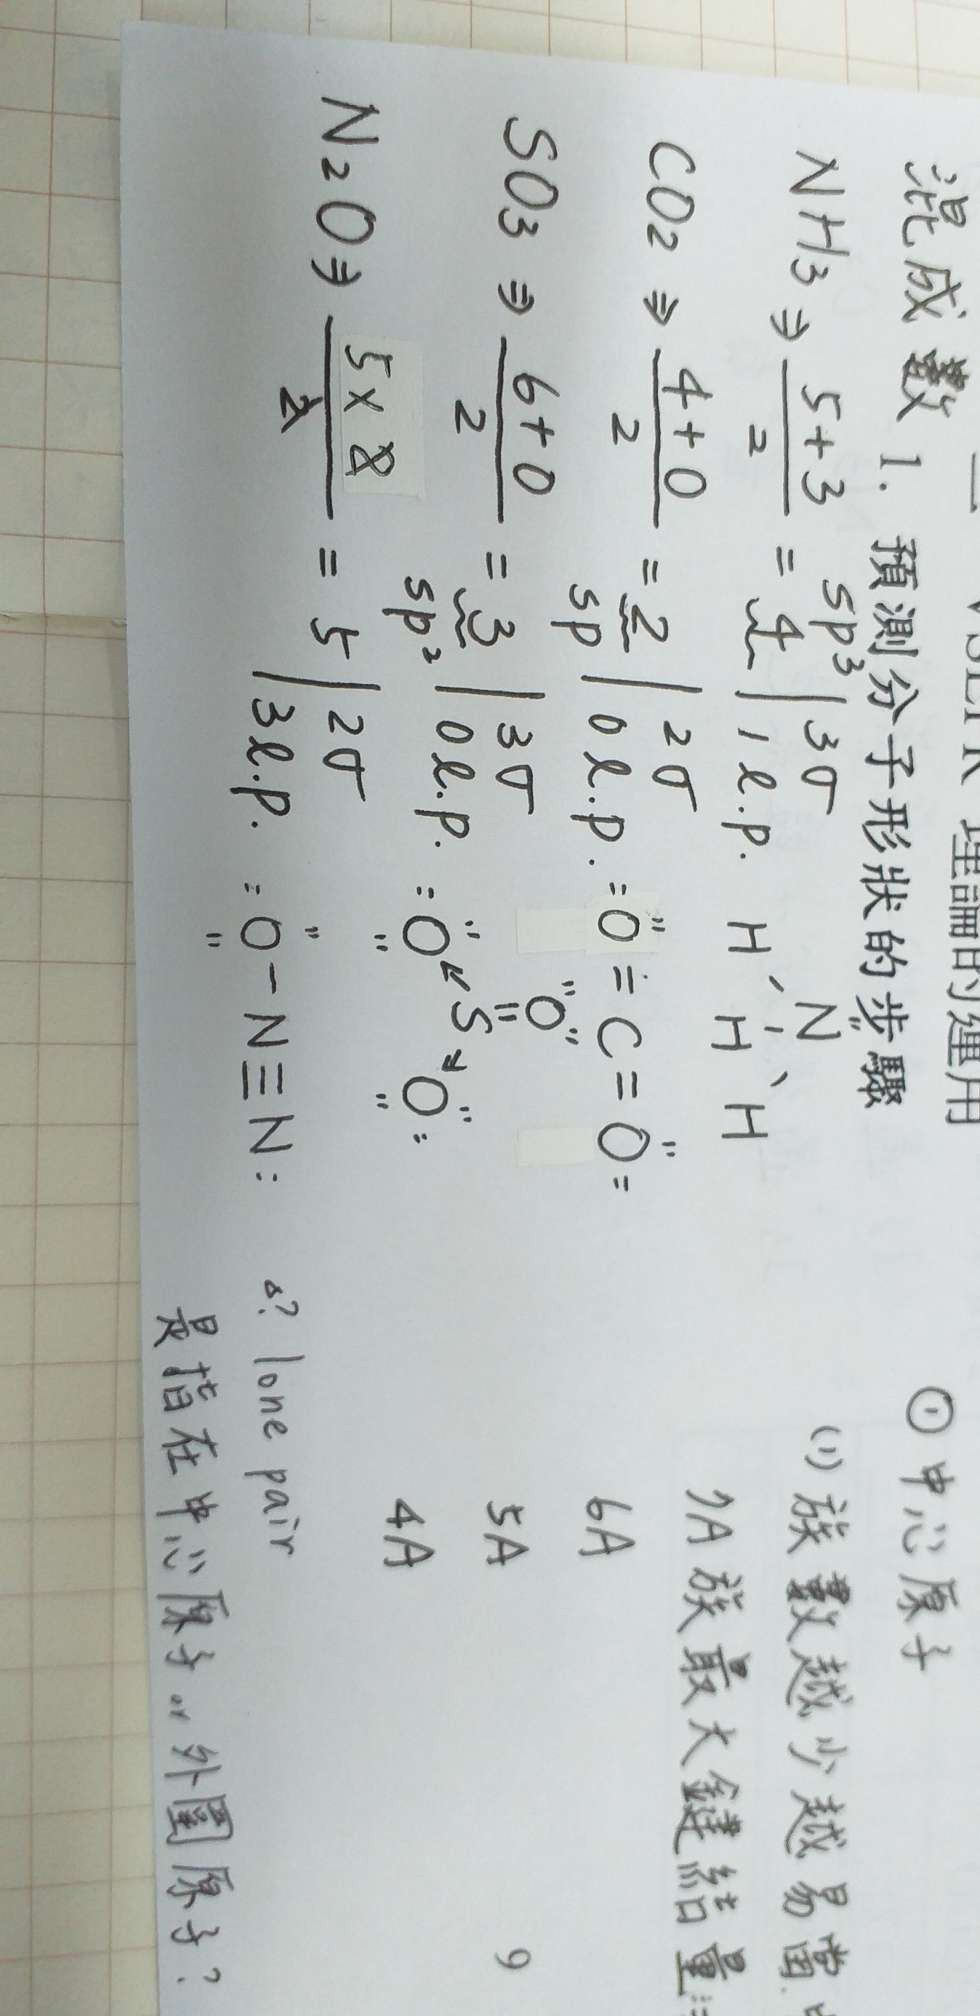 理論的運用
混成數 1. 預測分子形狀的步驟
NH3 ⇒ 5+3/2 = 4 sp³ | 3σ 1 l.p. H N H H
CO2 ⇒ 4+0/2 = 2 sp | 2σ 0 l.p. :O=C=O:
SO3 ⇒ 6+0/2 = 3 sp² | 3σ 0 l.p. :O←S→O: O
N2O ⇒ 5×8/2 = 5 | 2σ 3 l.p. :O-N≡N:
① 中心原子
(1) 族數越少越易當
7A族最大鍵結量
6A
5A
4A
? lone pair
是指在中心原子 or 外圍原子?
9